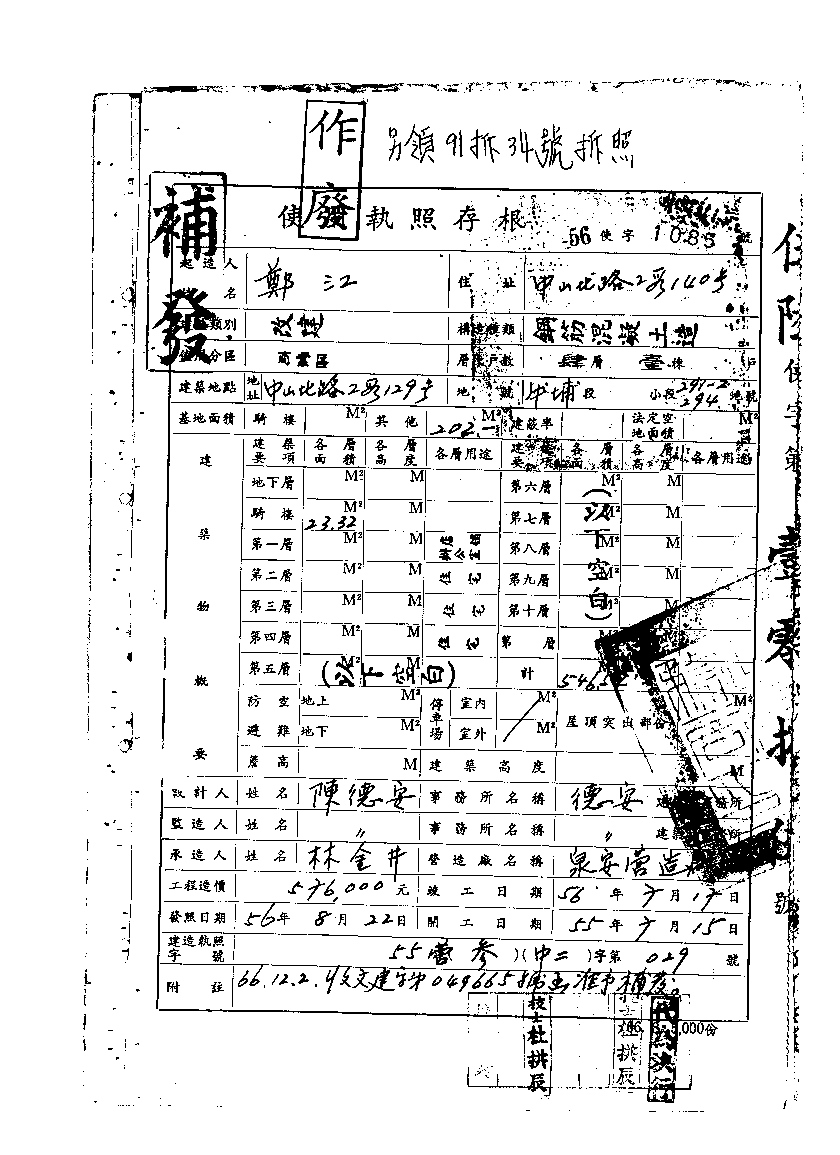 作廢
另領91拆34號拆照
補發
使 執照存根
56 使字 1085 號
起造人 姓名 鄭 江 住址 中山北路2段140號
類別 改建 構造種類 鋼筋混凝土造
使用分區 商業區 層棟戶數 肆層 壹棟 戶
建築地點 地址 中山北路2段129號 地號 中埔段 小段 291-2 294 地號
基地面積 騎樓 M² 其他 202 M² 建蔽率 法定空地面積 M²
建築物概要
建築要項 各層面積 各層高度 各層用途 建築要項 各層面積 各層高度 各層用途
地下層 M² M 第六層 M² M
騎樓 23.32 M² M 第七層 M² M
第一層 M² M 第八層 M² M
第二層 M² M 住宅 第九層 M² M
第三層 M² M 住宅 第十層 M² M
第四層 M² M 住宅 第 層
第五層 M² M 計 546
(以下空白)
(以下空白)
防空避難 地上 M² 停車場 室內 M² 屋頂突出部份 M²
地下 M² 室外 M²
簷高 M 建築高度 M
設計人 姓名 陳德安 事務所名稱 德安建 務所
監造人 姓名 〃 事務所名稱 〃 建 所
承造人 姓名 林金井 營造廠名稱 泉安營造
工程造價 576,000元 竣工日期 56年7月17日
發照日期 56年8月22日 開工日期 55年7月15日
建造執照字號 55營參(中二)字第029號
附註 66.12.2.
技士杜拱辰
技士杜拱辰
代為決行
,000份
使字第
壹零
號